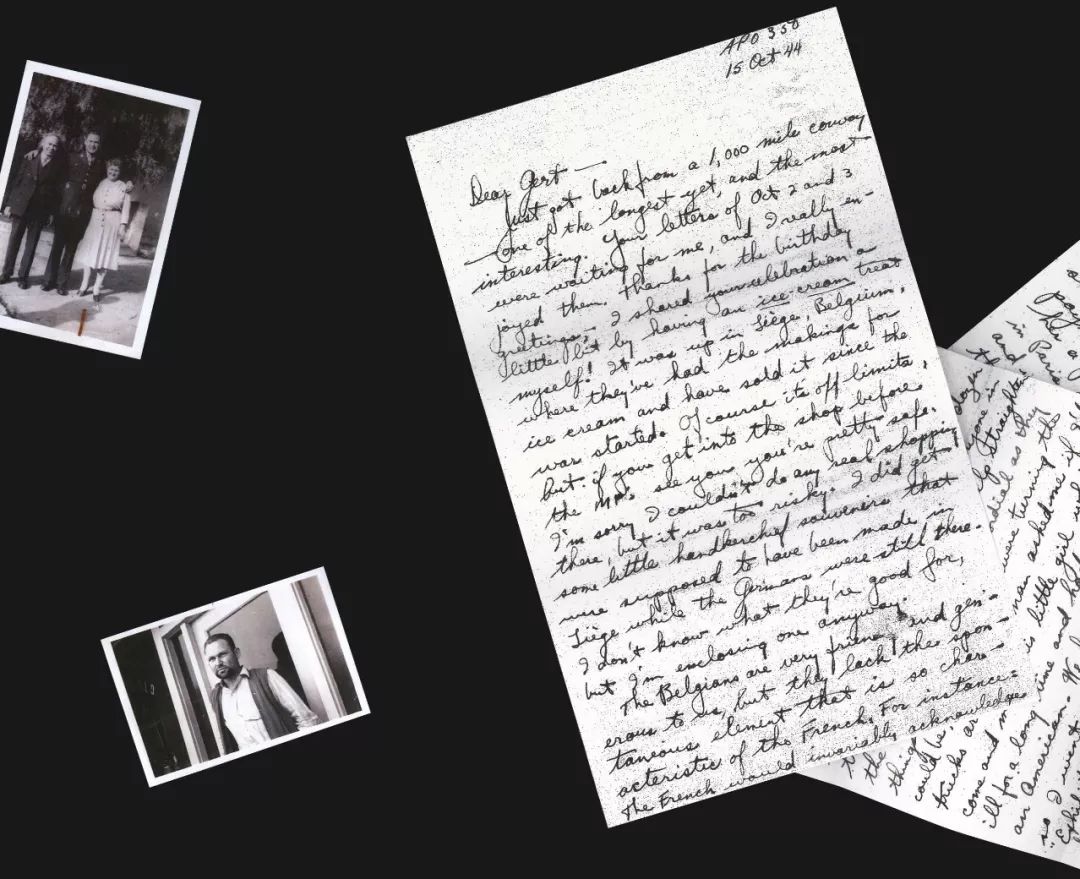 APO 350
15 Oct 44
Dear Gert —
Just got back from a 1,000 mile convoy
— one of the longest yet, and the most
interesting. Your letters of Oct 2 and 3
were waiting for me, and I really en-
joyed them. Thanks for the birthday
greetings; I shared your celebration a
little bit by having an ice cream treat
myself! It was up in Liège, Belgium,
where they've had the makings for
ice cream and have sold it since the
war started. Of course its off limits,
but if you get into the shop before
the MP's see you you're pretty safe.
I'm sorry I couldn't do any real shopping
there, but it was too risky. I did get
some little handkerchief souvenirs that
were supposed to have been made in
Liège while the Germans were still there.
I don't know what they're good for,
but I'm enclosing one anyway.
The Belgians are very friendly and gen-
erous to us, but they lack the spon-
taneous element that is so char-
acteristic of the French. For instance:
the French would invariably acknowledge
in Paris
and
dozen
you're in
as they
were turning the
the
could be
man asked me if
trucks
is little girl
come and
ill for a long time and
an American. We
so I went